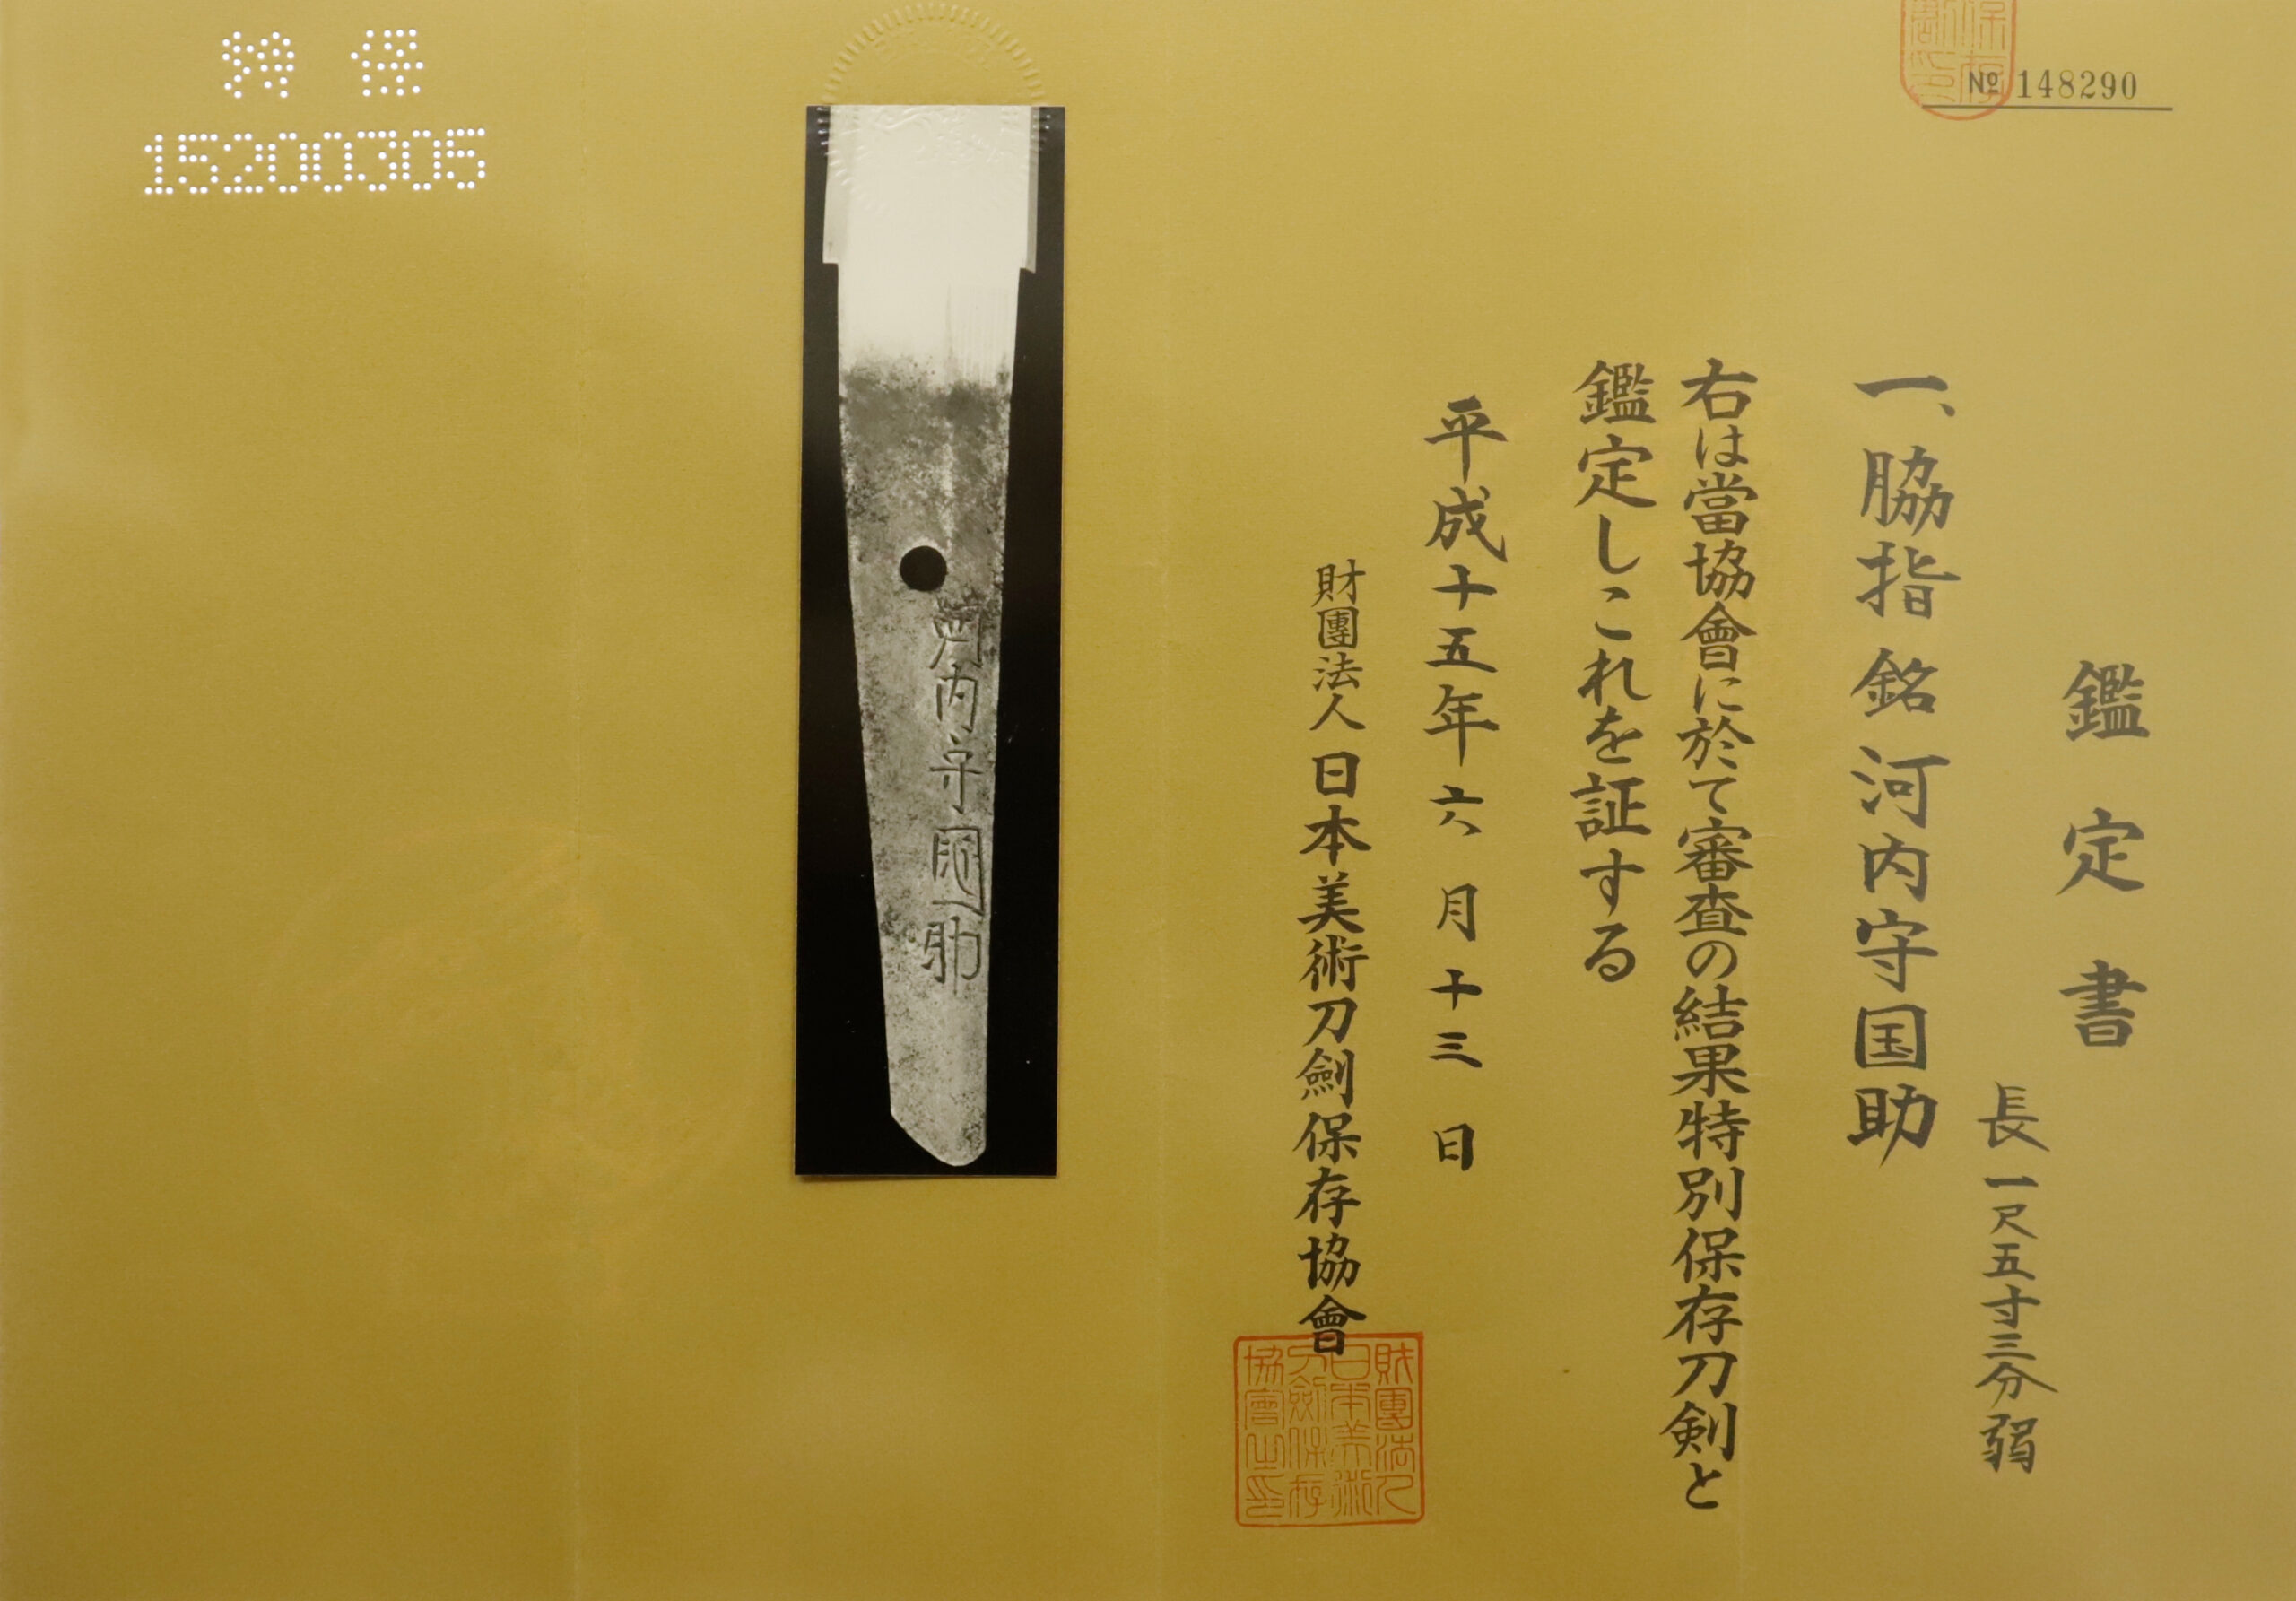 鑑定書
長一尺五寸三分弱
一、脇指 銘 河内守国助
右は當協會に於て審査の結果特別保存刀剣と
鑑定しこれを証する
平成十五年六月十三日
財團法人 日本美術刀劍保存協會
財團法人
日本美術
刀劍保存
協會之印
№ 148290
河内守國助
特 保
15200305